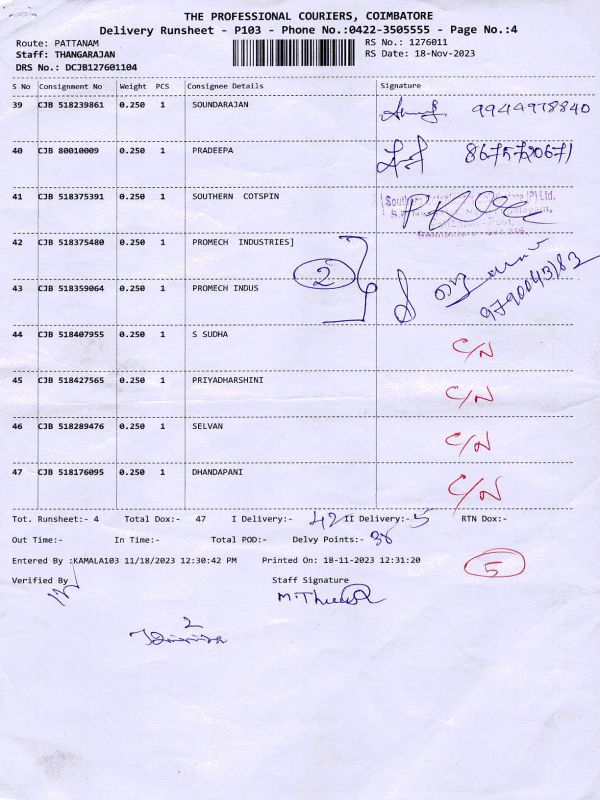 THE PROFESSIONAL COURIERS, COIMBATORE
Delivery Runsheet - P103 - Phone No.:0422-3505555 - Page No.:4
Route: PATTANAM RS No.: 1276011
Staff: THANGARAJAN RS Date: 18-Nov-2023
DRS No.: DCJB127601104
S No Consignment No Weight PCS Consignee Details Signature
39 CJB 518239861 0.250 1 SOUNDARAJAN 9944978840
40 CJB 80010009 0.250 1 PRADEEPA
41 CJB 518375391 0.250 1 SOUTHERN COTSPIN
42 CJB 518375480 0.250 1 PROMECH INDUSTRIES]
2
43 CJB 518359064 0.250 1 PROMECH INDUS 9790043183
44 CJB 518407955 0.250 1 S SUDHA C/N
45 CJB 518427565 0.250 1 PRIYADHARSHINI C/N
46 CJB 518289476 0.250 1 SELVAN C/N
47 CJB 518176095 0.250 1 DHANDAPANI C/N
Tot. Runsheet:- 4 Total Dox:- 47 I Delivery:- 42 II Delivery:- 5 RTN Dox:-
Out Time:- In Time:- Total POD:- Delvy Points:- 38
Entered By :KAMALA103 11/18/2023 12:30:42 PM Printed On: 18-11-2023 12:31:20
5
Verified By Staff Signature
2